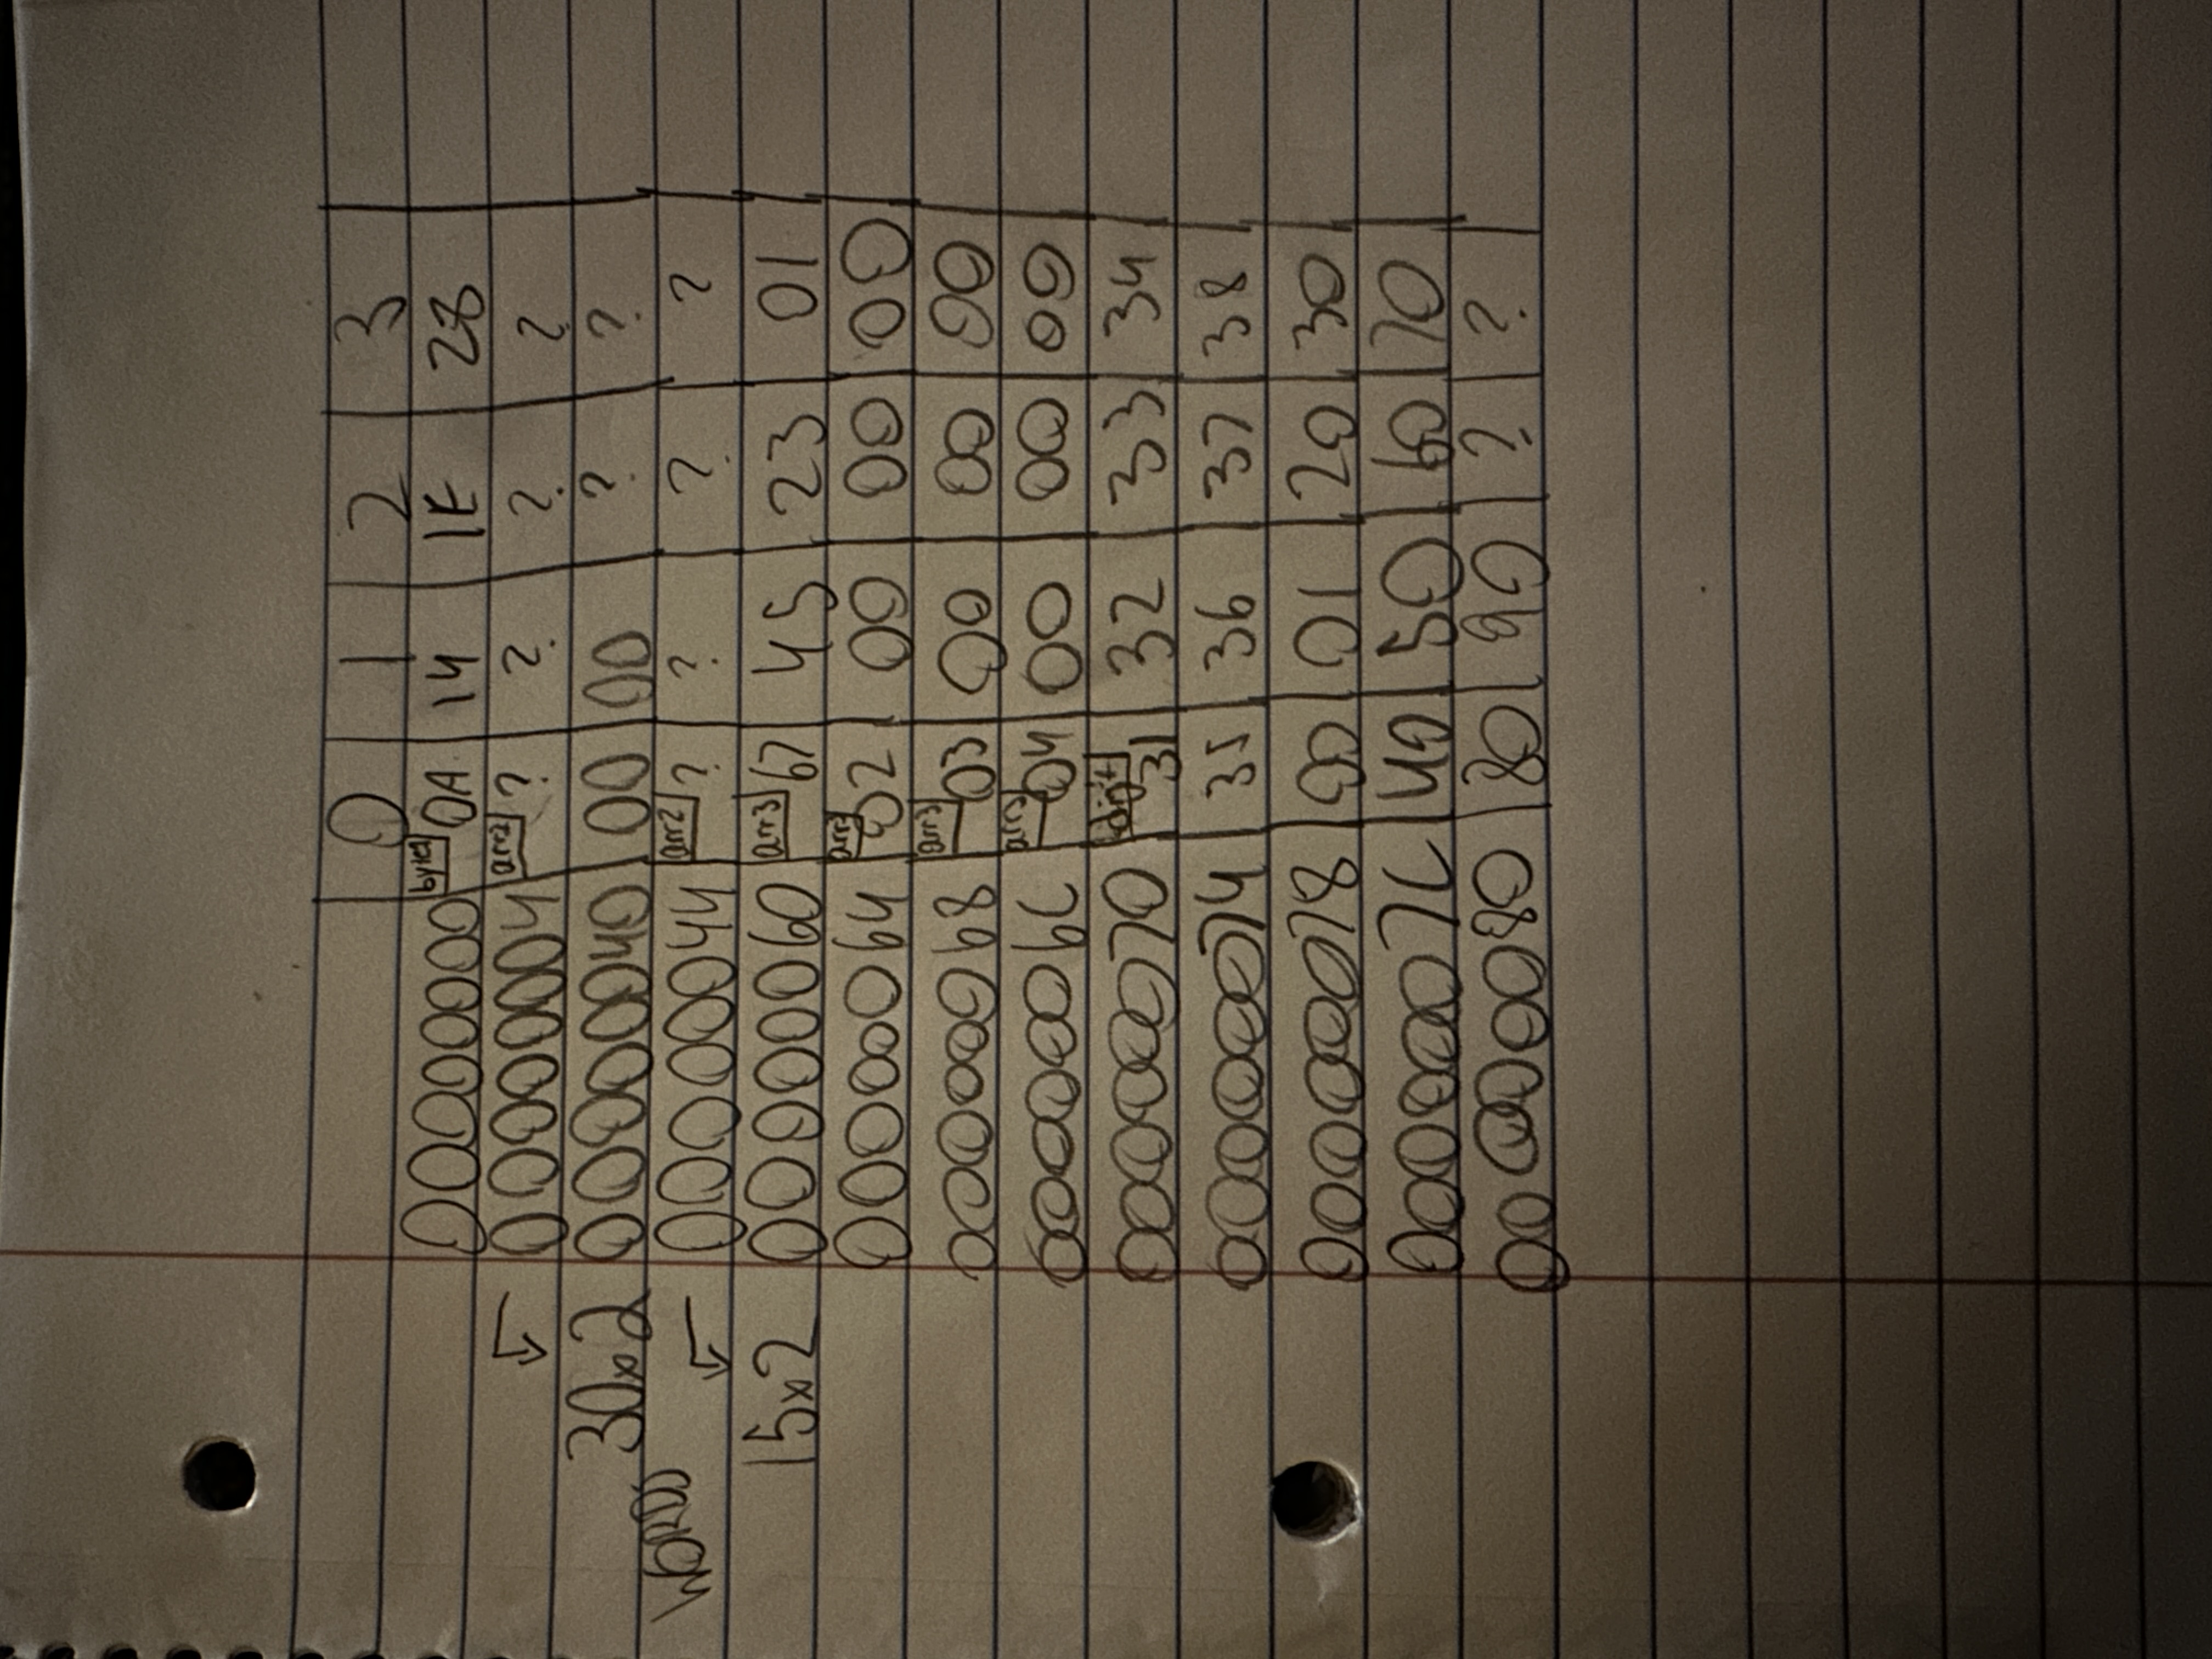 0 1 2 3
00000000 byte1 0A 14 1E 28
00000004 arr2 ? ? ? ?
30x2 00000040 00 00 ? ?
WORDS 00000044 arr2 ? ? ? ?
15x2 00000060 arr3 67 45 23 01
00000064 arr3 02 00 00 00
00000068 arr3 03 00 00 00
0000006C arr3 04 00 00 00
00000070 digit 31 32 33 34
00000074 35 36 37 38
00000078 00 01 20 30
0000007C 40 50 60 70
00000080 80 90 ? ?